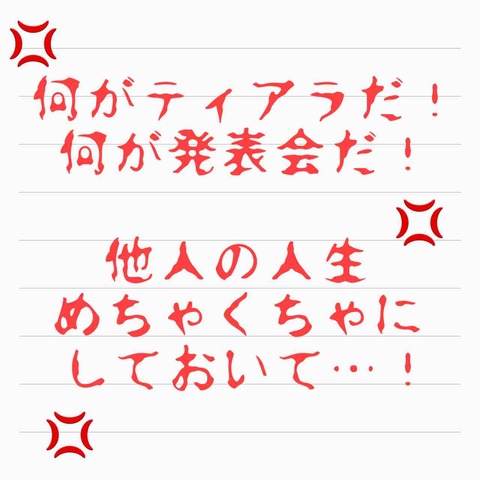 何がティアラだ！
何が発表会だ！
他人の人生
めちゃくちゃに
しておいて…！